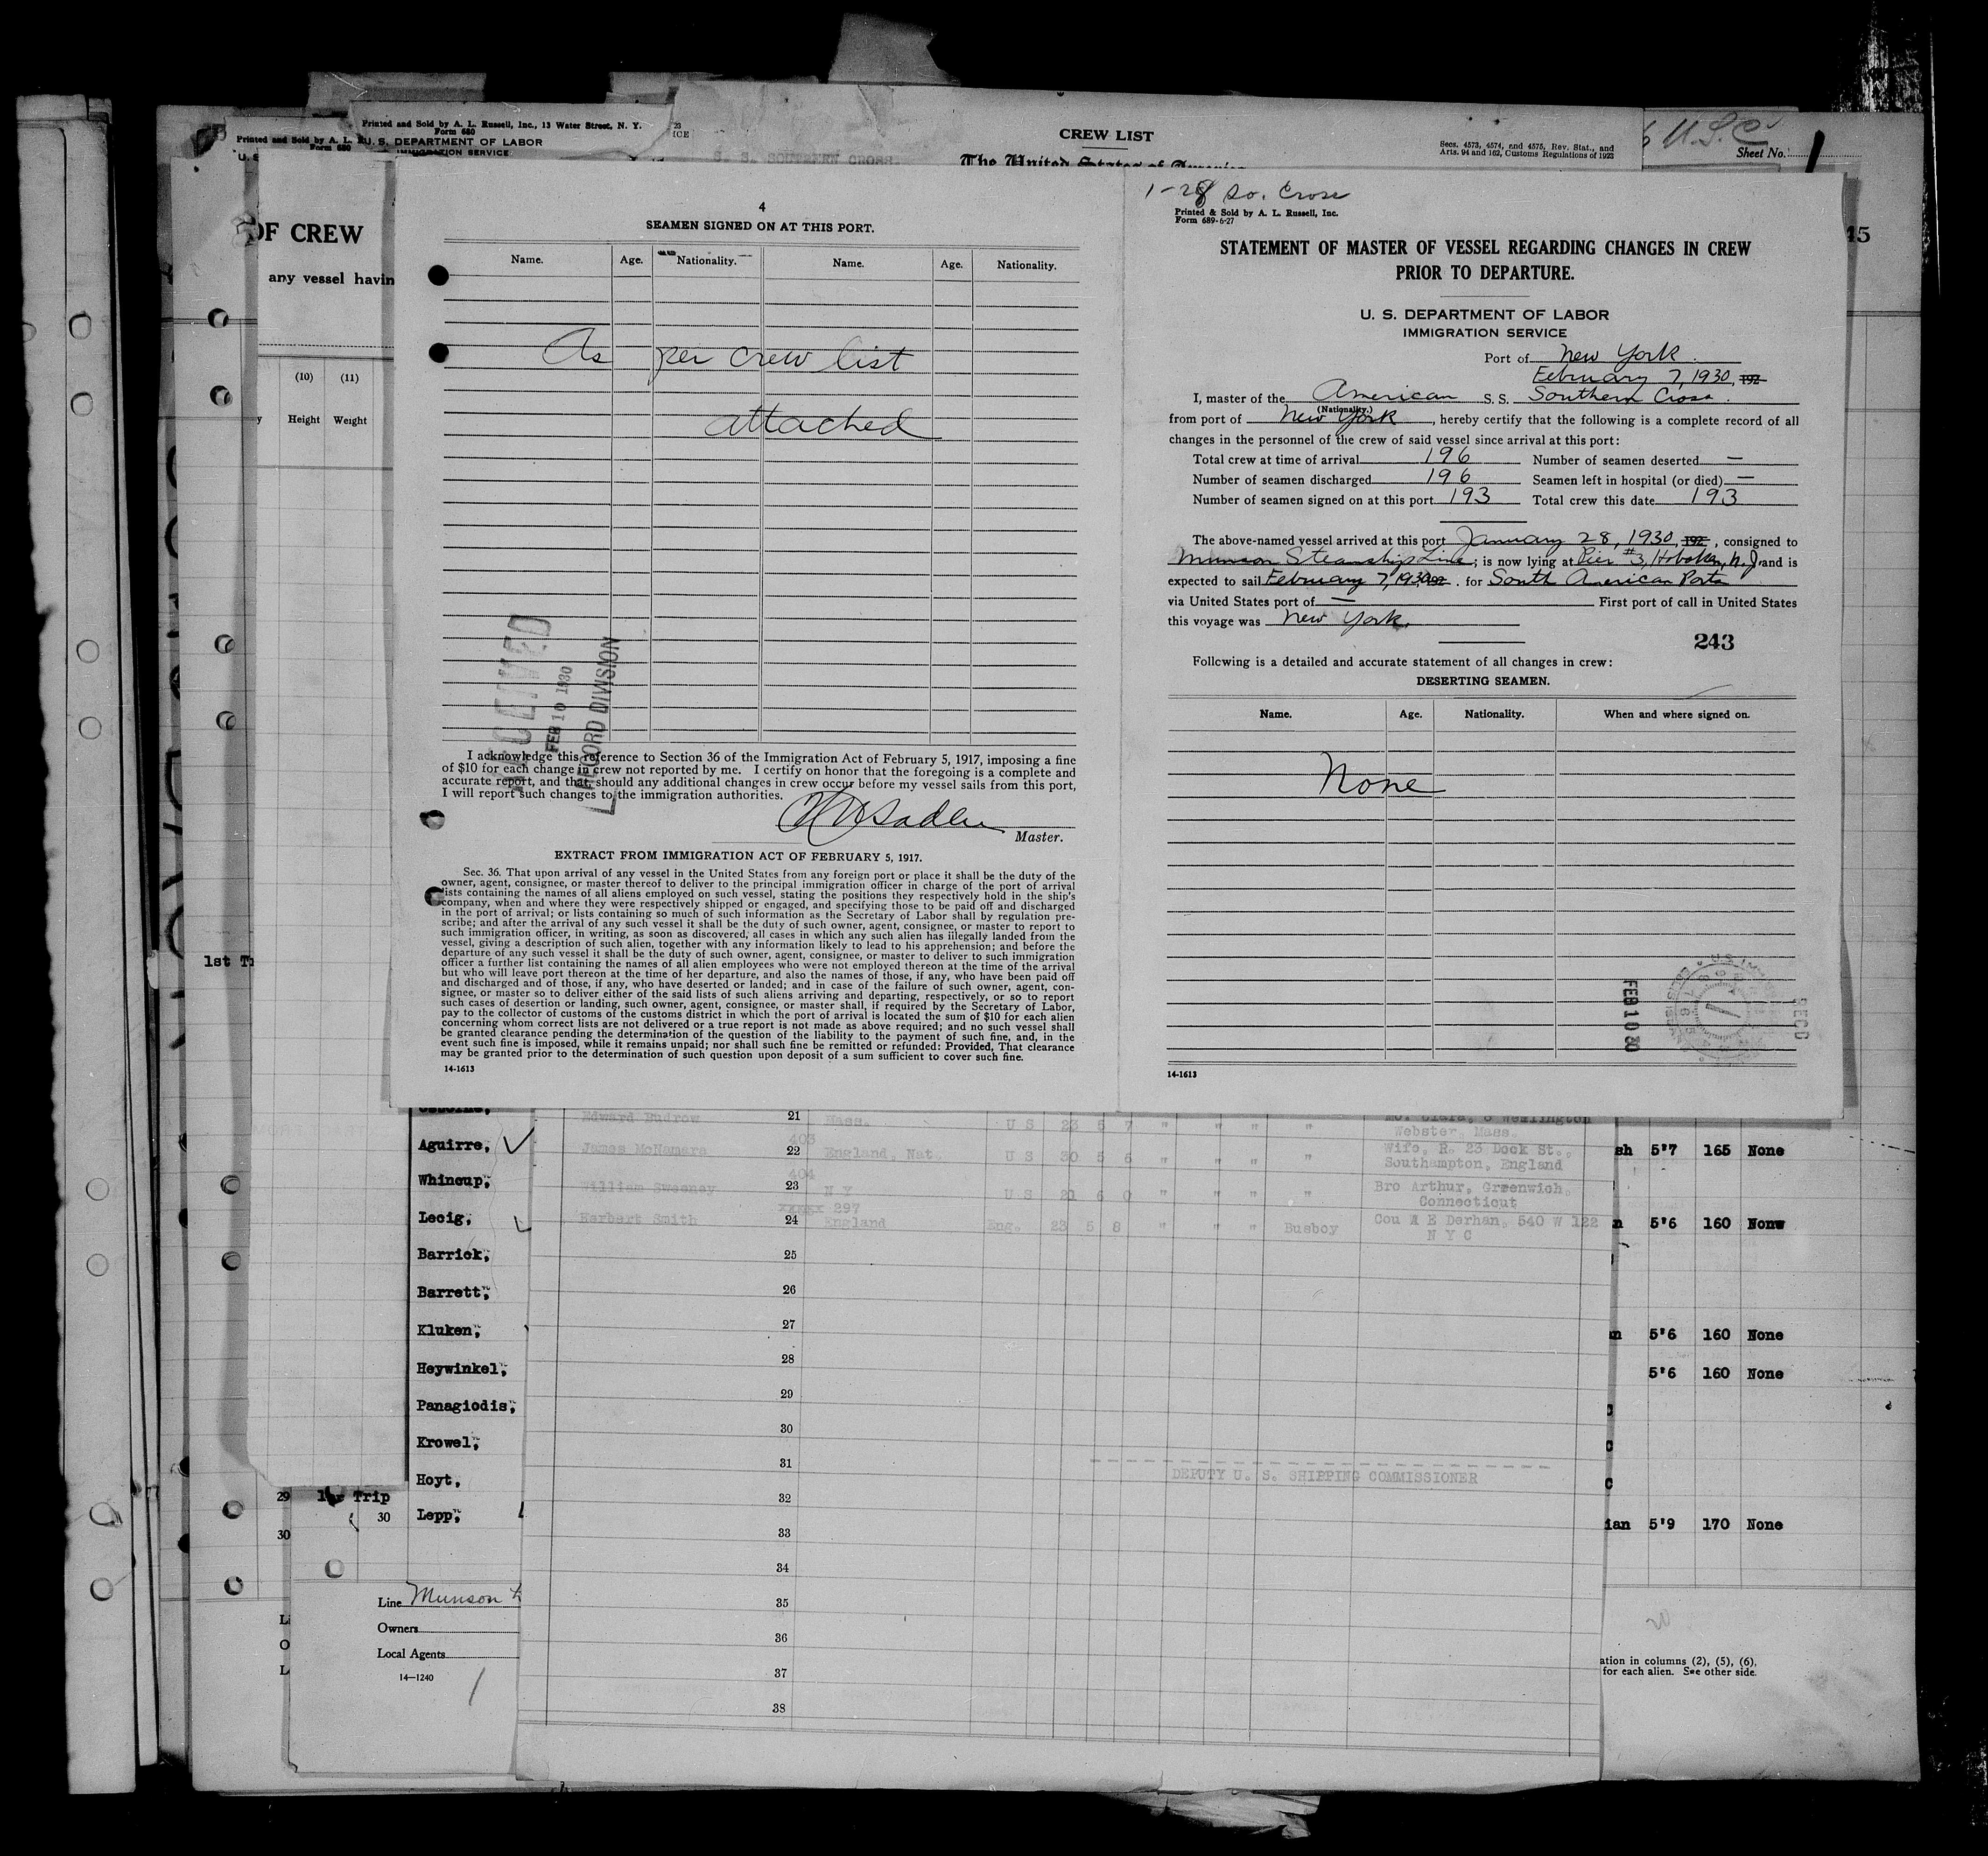 Printed and Sold by A. L. Russell, Inc., 13 Water Street, N. Y.
Form 680
U. S. DEPARTMENT OF LABOR
IMMIGRATION SERVICE
Printed and Sold by A. L. R
Form 680
U. S
23
ICE
S. S. SOUTHERN CROSS.
CREW LIST
The United States of America
Secs. 4573, 4574, and 4575, Rev. Stat., and
Arts. 94 and 162, Customs Regulations of 1923
U.S.C
Sheet No. 1
45
OF CREW
any vessel havin
(10) (11)
y Height Weight
4
SEAMEN SIGNED ON AT THIS PORT.
Name. Age. Nationality. Name. Age. Nationality.
As per crew list
attached
RECEIVED
FEB 10 1930
RECORD DIVISION
I acknowledge this reference to Section 36 of the Immigration Act of February 5, 1917, imposing a fine
of $10 for each change in crew not reported by me. I certify on honor that the foregoing is a complete and
accurate report, and that, should any additional changes in crew occur before my vessel sails from this port,
I will report such changes to the immigration authorities.
Sadler
Master.
EXTRACT FROM IMMIGRATION ACT OF FEBRUARY 5, 1917.
Sec. 36. That upon arrival of any vessel in the United States from any foreign port or place it shall be the duty of the
owner, agent, consignee, or master thereof to deliver to the principal immigration officer in charge of the port of arrival
lists containing the names of all aliens employed on such vessel, stating the positions they respectively hold in the ship's
company, when and where they were respectively shipped or engaged, and specifying those to be paid off and discharged
in the port of arrival; or lists containing so much of such information as the Secretary of Labor shall by regulation pre-
scribe; and after the arrival of any such vessel it shall be the duty of such owner, agent, consignee, or master to report to
such immigration officer, in writing, as soon as discovered, all cases in which any such alien has illegally landed from the
vessel, giving a description of such alien, together with any information likely to lead to his apprehension; and before the
departure of any such vessel it shall be the duty of such owner, agent, consignee, or master to deliver to such immigration
officer a further list containing the names of all alien employees who were not employed thereon at the time of the arrival
but who will leave port thereon at the time of her departure, and also the names of those, if any, who have been paid off
and discharged and of those, if any, who have deserted or landed; and in case of the failure of such owner, agent, con-
signee, or master so to deliver either of the said lists of such aliens arriving and departing, respectively, or so to report
such cases of desertion or landing, such owner, agent, consignee, or master shall, if required by the Secretary of Labor,
pay to the collector of customs of the customs district in which the port of arrival is located the sum of $10 for each alien
concerning whom correct lists are not delivered or a true report is not made as above required; and no such vessel shall
be granted clearance pending the determination of the question of the liability to the payment of such fine, and, in the
event such fine is imposed, while it remains unpaid; nor shall such fine be remitted or refunded: Provided, That clearance
may be granted prior to the determination of such question upon deposit of a sum sufficient to cover such fine.
14-1613
1-28 So. Cross
Printed & Sold by A. L. Russell, Inc.
Form 689-6-27
STATEMENT OF MASTER OF VESSEL REGARDING CHANGES IN CREW
PRIOR TO DEPARTURE.
U. S. DEPARTMENT OF LABOR
IMMIGRATION SERVICE
Port of New York.
February 7, 1930, 192
I, master of the American S. S. Southern Cross.
(Nationality.)
from port of New York, hereby certify that the following is a complete record of all
changes in the personnel of the crew of said vessel since arrival at this port:
Total crew at time of arrival 196 Number of seamen deserted —
Number of seamen discharged 196 Seamen left in hospital (or died) —
Number of seamen signed on at this port 193 Total crew this date 193
The above-named vessel arrived at this port January 28, 1930, 192, consigned to
Munson Steamship Line; is now lying at Pier #3, Hoboken, N. J. and is
expected to sail February 7, 1930, 192. for South American Ports
via United States port of — First port of call in United States
this voyage was New York.
243
Following is a detailed and accurate statement of all changes in crew:
DESERTING SEAMEN.
Name. Age. Nationality. When and where signed on.
None
FEB 10 30
RECD
14-1613
1st Tr
Osborne,
Aguirre,
Whincup,
Lecig,
Barrick,
Barrett,
Kluken,
Heywinkel,
Panagiodis,
Krowel,
Hoyt,
Lepp,
29 1st Trip
30
30
Edward Budrow 21 Mass. U S 23 5 7 " " " " Mo. Clara, 8 Wemlington
Webster, Mass.
403
James McNamara 22 England, Nat. U S 30 5 6 " " " " Wife, R. 23 Dock St.,
Southampton, England
404
William Sweeney 23 N Y U S 21 6 0 " " " " Bro Arthur, Greenwich,
Connecticut
297
Herbert Smith 24 England Eng. 23 5 8 " " " Busboy Cou A E Derhan, 540 W 122
N Y C
25
26
27
28
29
30
31
DEPUTY U. S. SHIPPING COMMISSIONER
32
33
34
35
36
37
38
sh 5'7 165 None
n 5'6 160 None
n 5'6 160 None
5'6 160 None
ian 5'9 170 None
Line Munson
Owners
Local Agents
14—1240
Li
O
L
ation in columns (2), (5), (6),
for each alien. See other side.